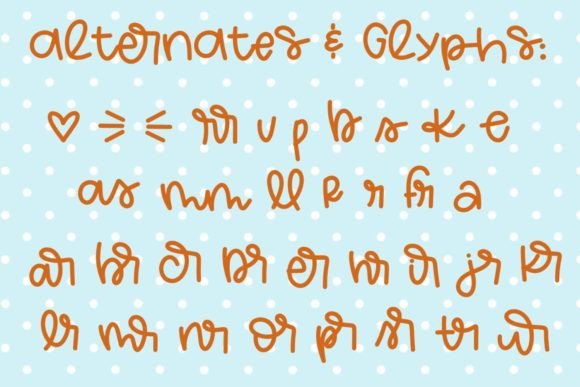 alternates & Glyphs:
♡ rr u p b s k e
as mm ll R r fr a
ar br cr Dr er hr ir jr kr
lr mr nr or pr sr tr ur